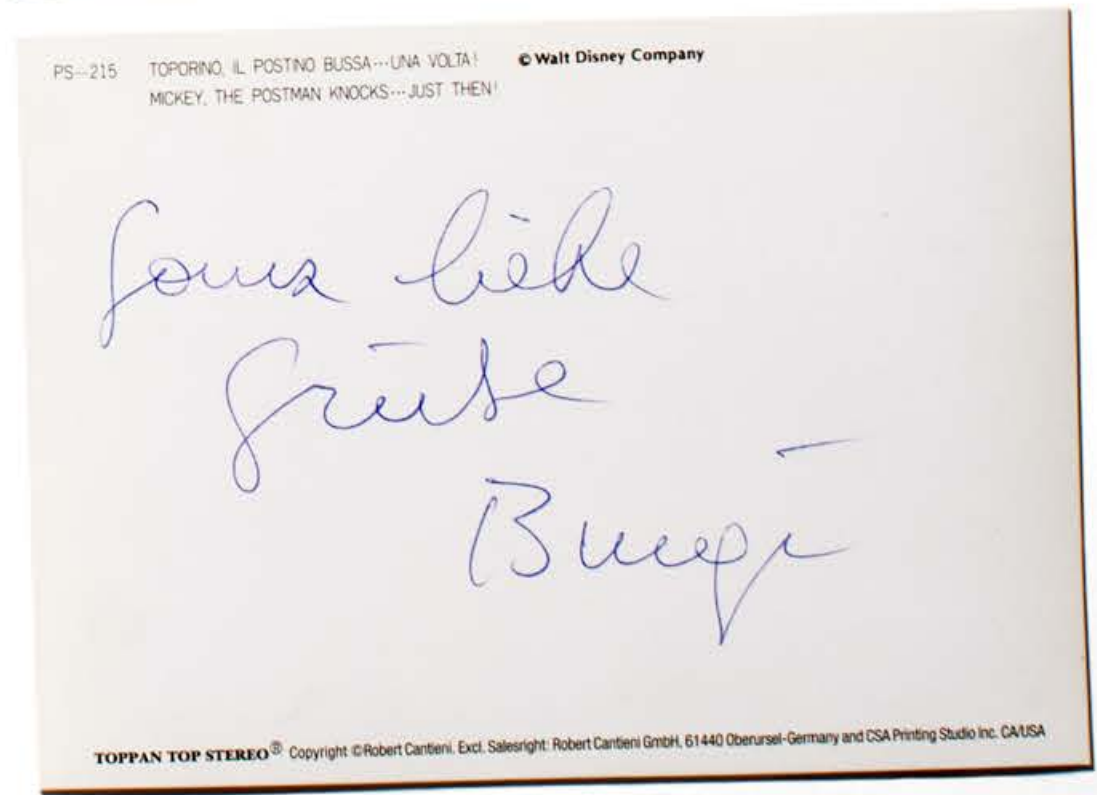 PS-215 TOPORINO, IL POSTINO BUSSA···UNA VOLTA! © Walt Disney Company
MICKEY, THE POSTMAN KNOCKS···JUST THEN!
Ganz liebe
Grüße
TOPPAN TOP STEREO® Copyright ©Robert Cantieni. Excl. Salesright: Robert Cantieni GmbH, 61440 Oberursel-Germany and CSA Printing Studio Inc. CA/USA